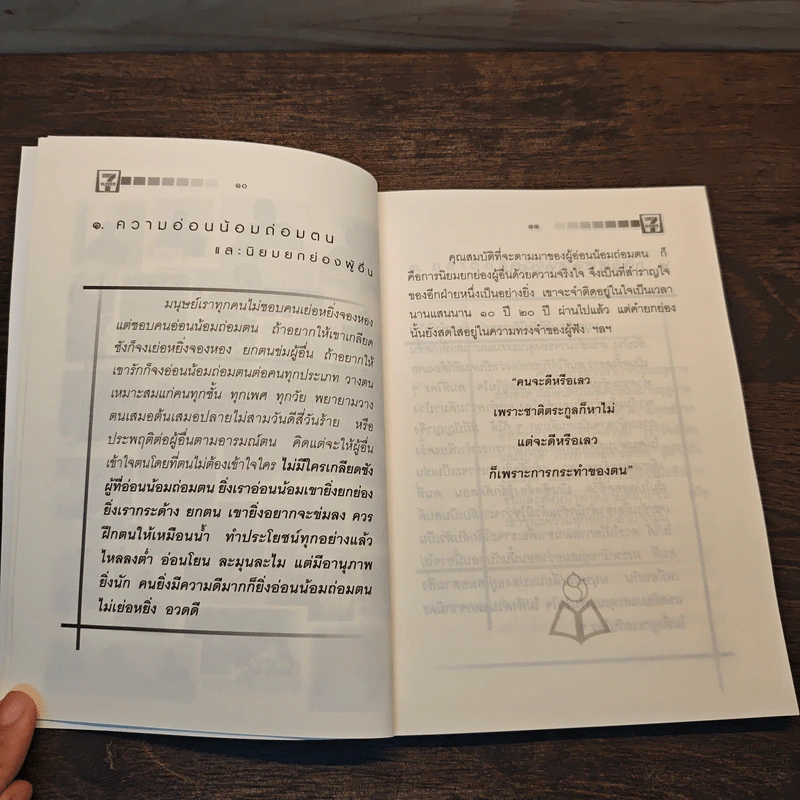 7
ELEVEN
๑๐
๑. ความอ่อนน้อมถ่อมตน
และนิยมยกย่องผู้อื่น
มนุษย์เราทุกคนไม่ชอบคนเย่อหยิ่งจองหอง
แต่ชอบคนอ่อนน้อมถ่อมตน ถ้าอยากให้เขาเกลียด
ชังก็จงเย่อหยิ่งจองหอง ยกตนข่มผู้อื่น ถ้าอยากให้
เขารักก็จงอ่อนน้อมถ่อมตนต่อคนทุกประเภท วางตน
เหมาะสมแก่คนทุกชั้น ทุกเพศ ทุกวัย พยายามวาง
ตนเสมอต้นเสมอปลายไม่สามวันดีสี่วันร้าย หรือ
ประพฤติต่อผู้อื่นตามอารมณ์ตน คิดแต่จะให้ผู้อื่น
เข้าใจตนโดยที่ตนไม่ต้องเข้าใจใคร ไม่มีใครเกลียดชัง
ผู้ที่อ่อนน้อมถ่อมตน ยิ่งเราอ่อนน้อมเขายิ่งยกย่อง
ยิ่งเรากระด้าง ยกตน เขายิ่งอยากจะข่มลง ควร
ฝึกตนให้เหมือนน้ำ ทำประโยชน์ทุกอย่างแล้ว
ไหลลงต่ำ อ่อนโยน ละมุนละไม แต่มีอานุภาพ
ยิ่งนัก คนยิ่งมีความดีมากก็ยิ่งอ่อนน้อมถ่อมตน
ไม่เย่อหยิ่ง อวดดี
๑๑
7
คุณสมบัติที่จะตามมาของผู้อ่อนน้อมถ่อมตน ก็
คือการนิยมยกย่องผู้อื่นด้วยความจริงใจ จึงเป็นที่สำราญใจ
ของอีกฝ่ายหนึ่งเป็นอย่างยิ่ง เขาจะจำติดอยู่ในใจเป็นเวลา
นานแสนนาน ๑๐ ปี ๒๐ ปี ผ่านไปแล้ว แต่คำยกย่อง
นั้นยังสดใสอยู่ในความทรงจำของผู้ฟัง ฯลฯ
“คนจะดีหรือเลว
เพราะชาติตระกูลก็หาไม่
แต่จะดีหรือเลว
ก็เพราะการกระทำของตน”